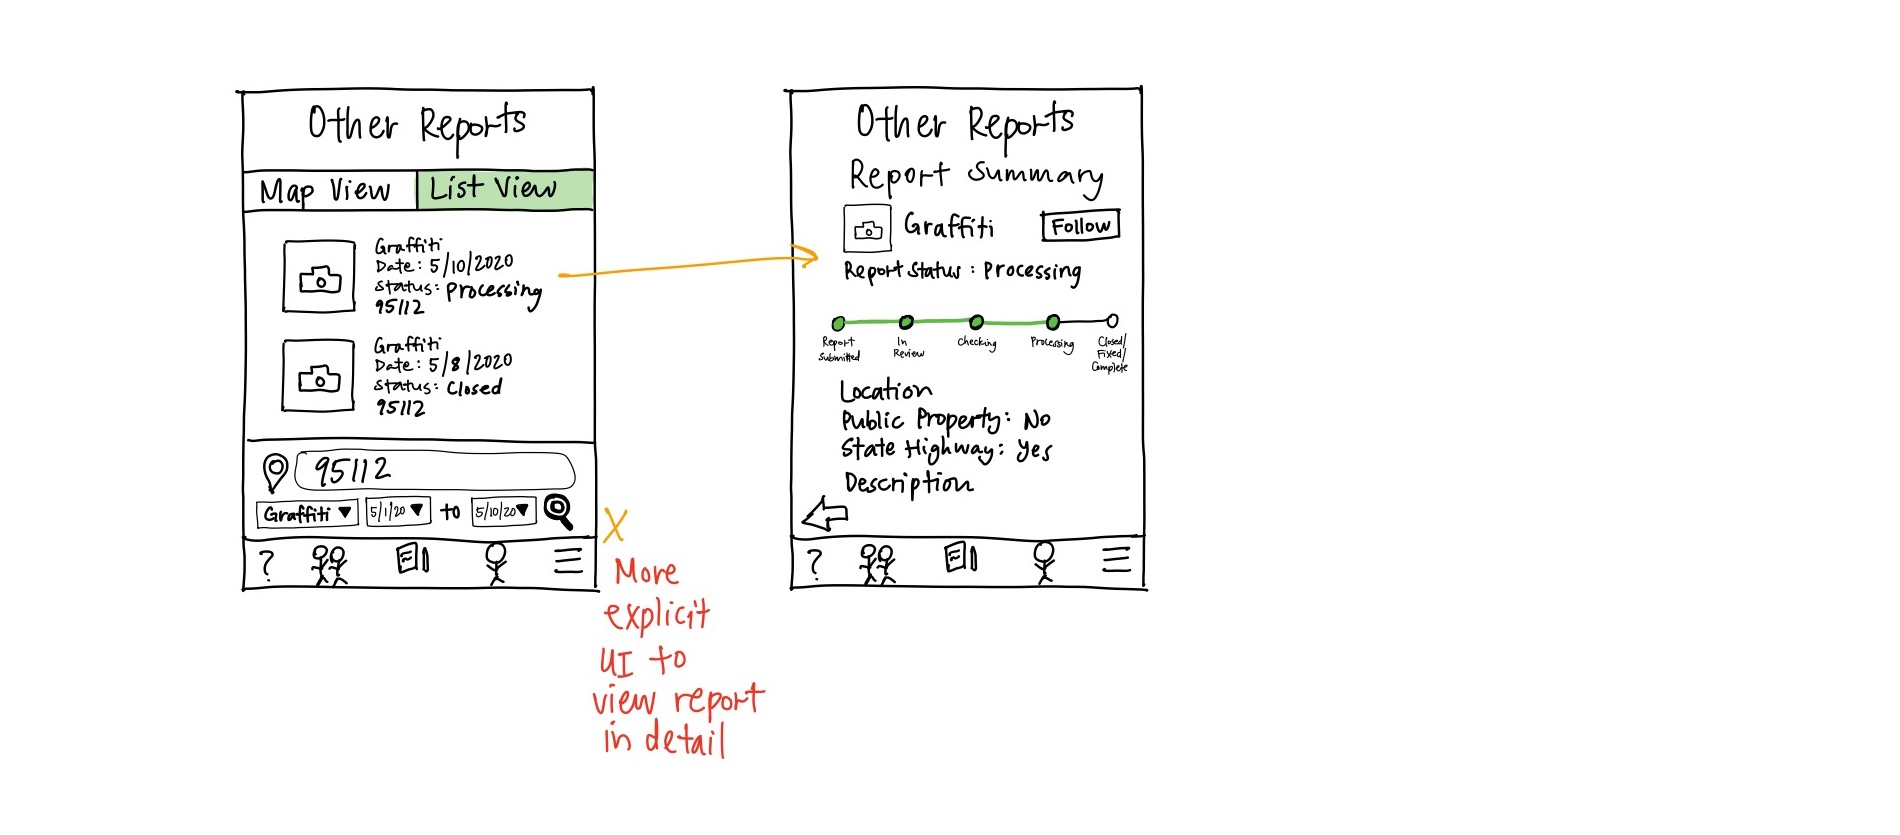 Other Reports
Map View
List View
Graffiti
Date: 5/10/2020
Status: Processing
95112
Graffiti
Date: 5/8/2020
Status: Closed
95112
95112
Graffiti ▼ 5/1/20 ▼ to 5/10/20 ▼
?
X
More
explicit
UI to
view report
in detail
Other Reports
Report Summary
Graffiti
Follow
Report Status: Processing
Report
Submitted
In
Review
Checking
Processing
Closed/
Fixed/
Complete
Location
Public Property: No
State Highway: Yes
Description
?